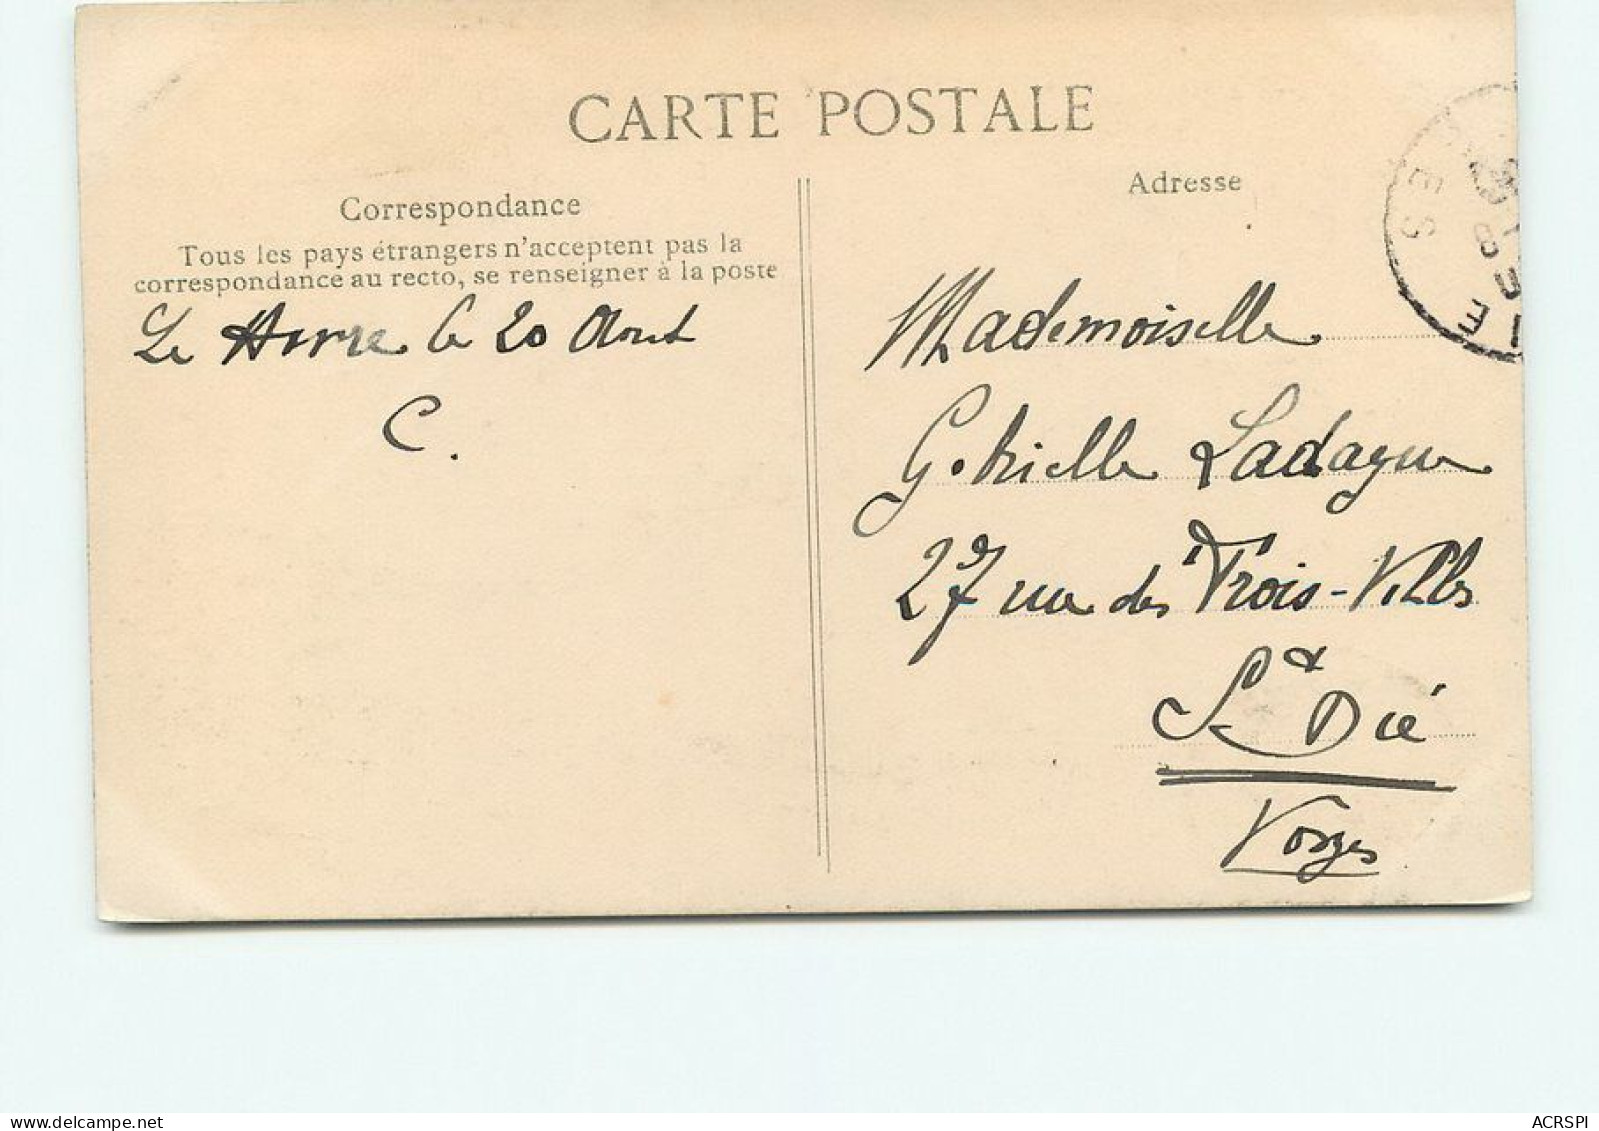 CARTE POSTALE
Correspondance
Tous les pays étrangers n'acceptent pas la
correspondance au recto, se renseigner à la poste
Le Havre le 20 Août
C.
Adresse
Mademoiselle
Gabrielle Ladague
27 rue des Trois-Villes
St Dié
Vosges
ES
E
ACRSPI